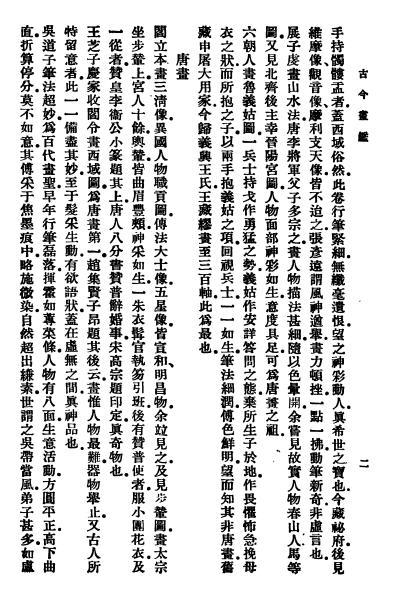 古今畫鑑
二
手持髑髏盂者蓋西域俗然此卷行筆緊細無纖毫遺恨望之神彩動人眞希世之寶也今藏祕府後見
維摩像觀音像摩利支天像皆不迨之張彥遠謂風神遒舉畫力頓挫一點一拂動筆新奇非虛言也
展子虔畫山水法唐李將軍父子多宗之畫人物描法甚細隨以色暈開余嘗見故實人物春山人馬等
圖又見北齊後主幸晉陽宮圖人物面部神彩如生意度具足可爲唐畫之祖
六朝人畫魯義姑圖一兵士持戈作勇猛之勢義姑作安詳答問之態棄所生子於地作畏懼怖急挽母
衣之狀而所抱之子以兩手抱義姑之項回視兵士一一如生筆法細潤傅色鮮明望而知其非唐畫舊
藏申屠大用家今歸義興王氏王藏繆畫至三百軸此爲最也
唐畫
閻立本畫三淸像異國人物職貢圖傳法大士像五星像皆宣和明昌物余竝見之及見步輦圖畫太宗
坐步輦上宮人十餘輿輦皆曲眉豐頰神采如生一朱衣髯官執笏引班後有贊普使者服小團花衣及
一從者贊皇李衞公小篆題其上唐人八分書贊普辭婚事宋高宗題印定眞奇物也
王芝子慶家收閻令畫西域圖爲唐畫第一趙集賢子昂題其後云畫惟人物最難器物舉止又古人所
特留意者此一一備盡其妙至于髮采生動有欲語狀蓋在虛無之間眞神品也
吳道子筆法超妙爲百代畫聖早年行筆磊落揮霍如蓴菜條人物有八面生意活動方圓平正高下曲
直折算停分莫不如意其傅采于焦墨痕中略施微染自然超出縑素世謂之吳帶當風弟子甚多如盧